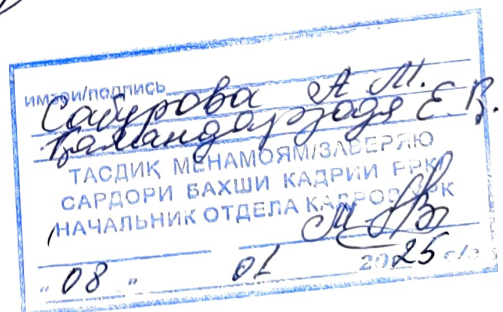 имзои/подпись
Сабурова А М.
Қамандарзода Е. В.
ТАСДИҚ МЕНАМОЯМ/ЗАВЕРЯЮ
САРДОРИ БАХШИ КАДРИИ РРК
НАЧАЛЬНИК ОТДЕЛА КАДРОВ РРК
"08" 01 2025 с/г